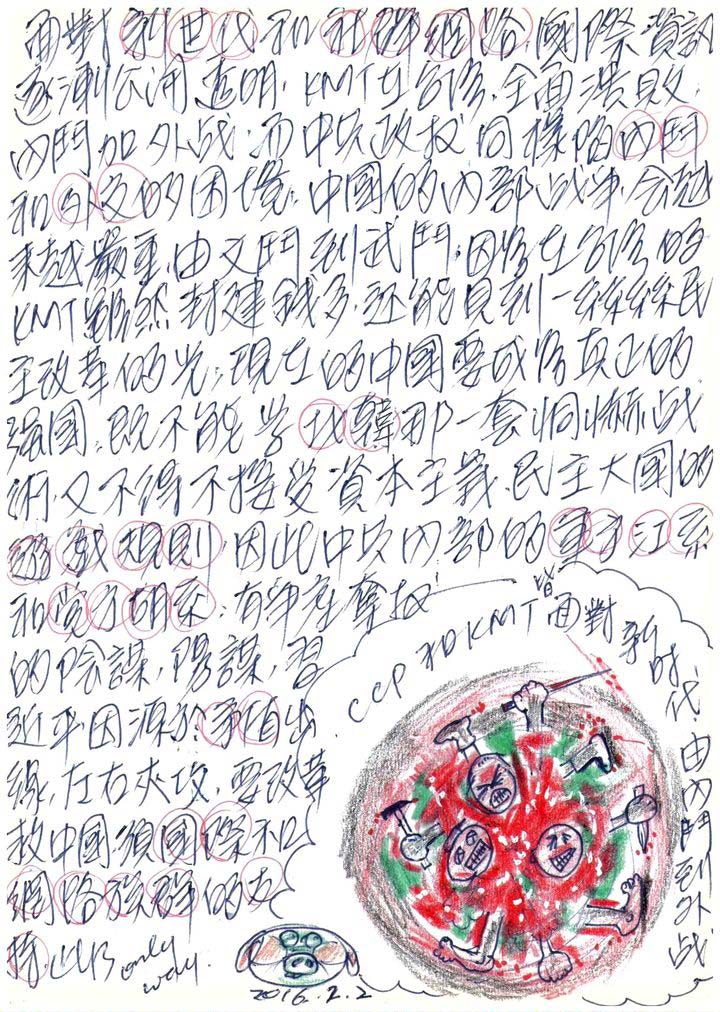 面對新世代和社群網路,國際資訊
逐漸公開透明,KMT在台灣,全面潰敗,
內鬥加外战,而中共政权同樣陷內鬥
和外交的困境,中國的內部战爭,会越
來越嚴重,由文鬥到武鬥,因為在台湾的
KMT雖然封建錢多,还能見到一絲絲民
主改革的光,現在的中國要成為真正的
強國,既不能学北韓那一套恫嚇战
術,又不得不接受資本主義,民主大國的
遊戲規則,因此中共內部的軍方江系
和党方胡系,有計畫奪权
的陰謀,陽謀,習
近平因源於
緣,左右夾攻,要改革
救中國須國際和
網路族群的支
持,此為only
way.
CCP和KMT皆面對新時代,由內鬥到外战
2016.2.2